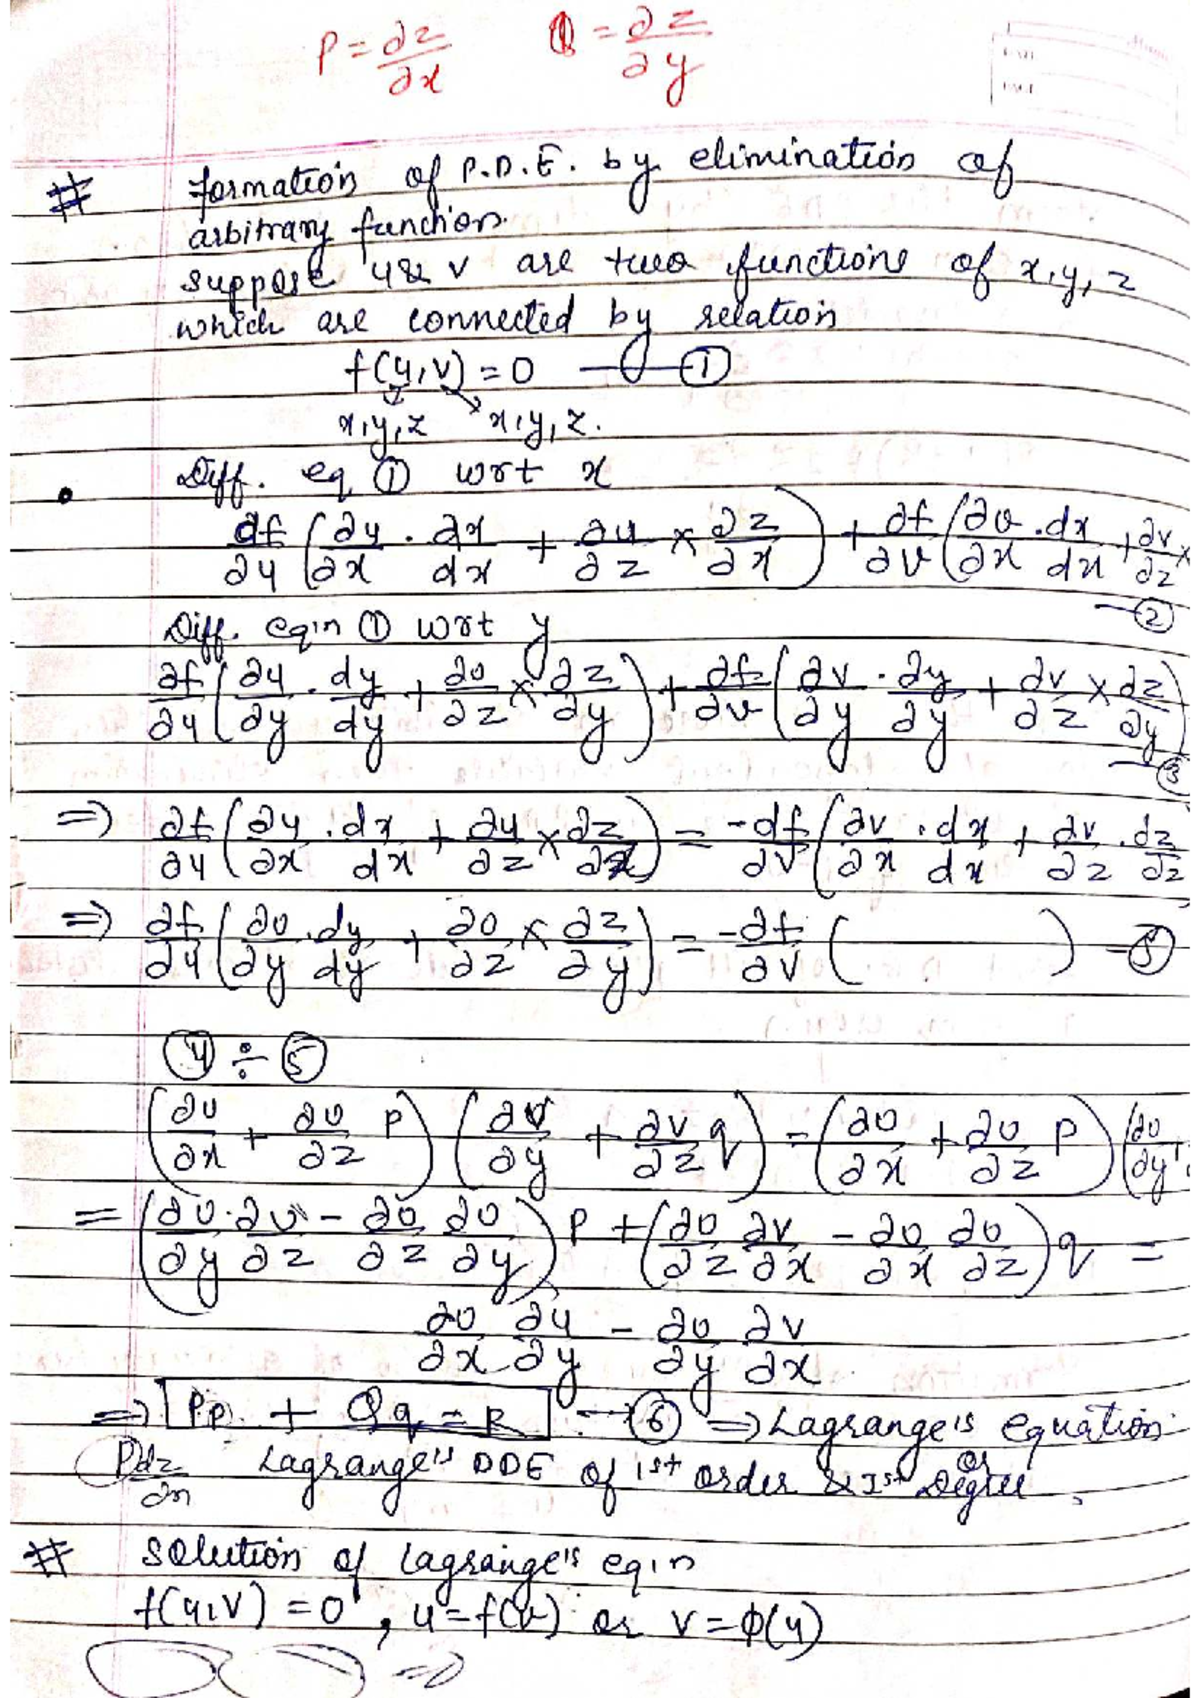 P = ∂z/∂x    Q = ∂z/∂y
# formation of P.D.E. by elimination of
arbitrary function.
suppose u & v are two functions of x, y, z
which are connected by relation
f(u,v) = 0 — ①
x, y, z    x, y, z.
• Diff. eq ① wrt x
∂f/∂u (∂u/∂x · ∂x/dx + ∂u/∂z × ∂z/∂x) + ∂f/∂v (∂v/∂x · dx/dx + ∂v/∂z ×
— ②
Diff. eqin ① wrt y
∂f/∂u (∂u/∂y · dy/dy + ∂u/∂z × ∂z/∂y) + ∂f/∂v (∂v/∂y · ∂y/∂y + ∂v/∂z × dz/∂y)
— ③
=> ∂f/∂u (∂u/∂x · dx/dx + ∂u/∂z × ∂z/∂x) = -df/∂v (∂v/∂x · dx/dx + ∂v/∂z · dz/∂z
=> ∂f/∂u (∂u/∂y · dy/dy + ∂u/∂z × ∂z/∂y) = -∂f/∂v (      ) — ⑤
④ ÷ ⑤
(∂u/∂x + ∂u/∂z P) (∂v/∂y + ∂v/∂z q) = (∂v/∂x + ∂v/∂z P) (∂u/∂y +
= (∂u/∂y · ∂v/∂z - ∂u/∂z ∂v/∂y) P + (∂u/∂z ∂v/∂x - ∂u/∂x ∂v/∂z) q =
∂v/∂x ∂u/∂y - ∂u/∂y ∂v/∂x
=> Pp + Qq = R — ⑥ => Lagrange's equation
or
P∂z/∂x Lagrange's PDE of 1st order & 1st Degree.
# Solution of Lagrange's eqin
f(u,v) = 0, u = f(v) or v = φ(u)
=>